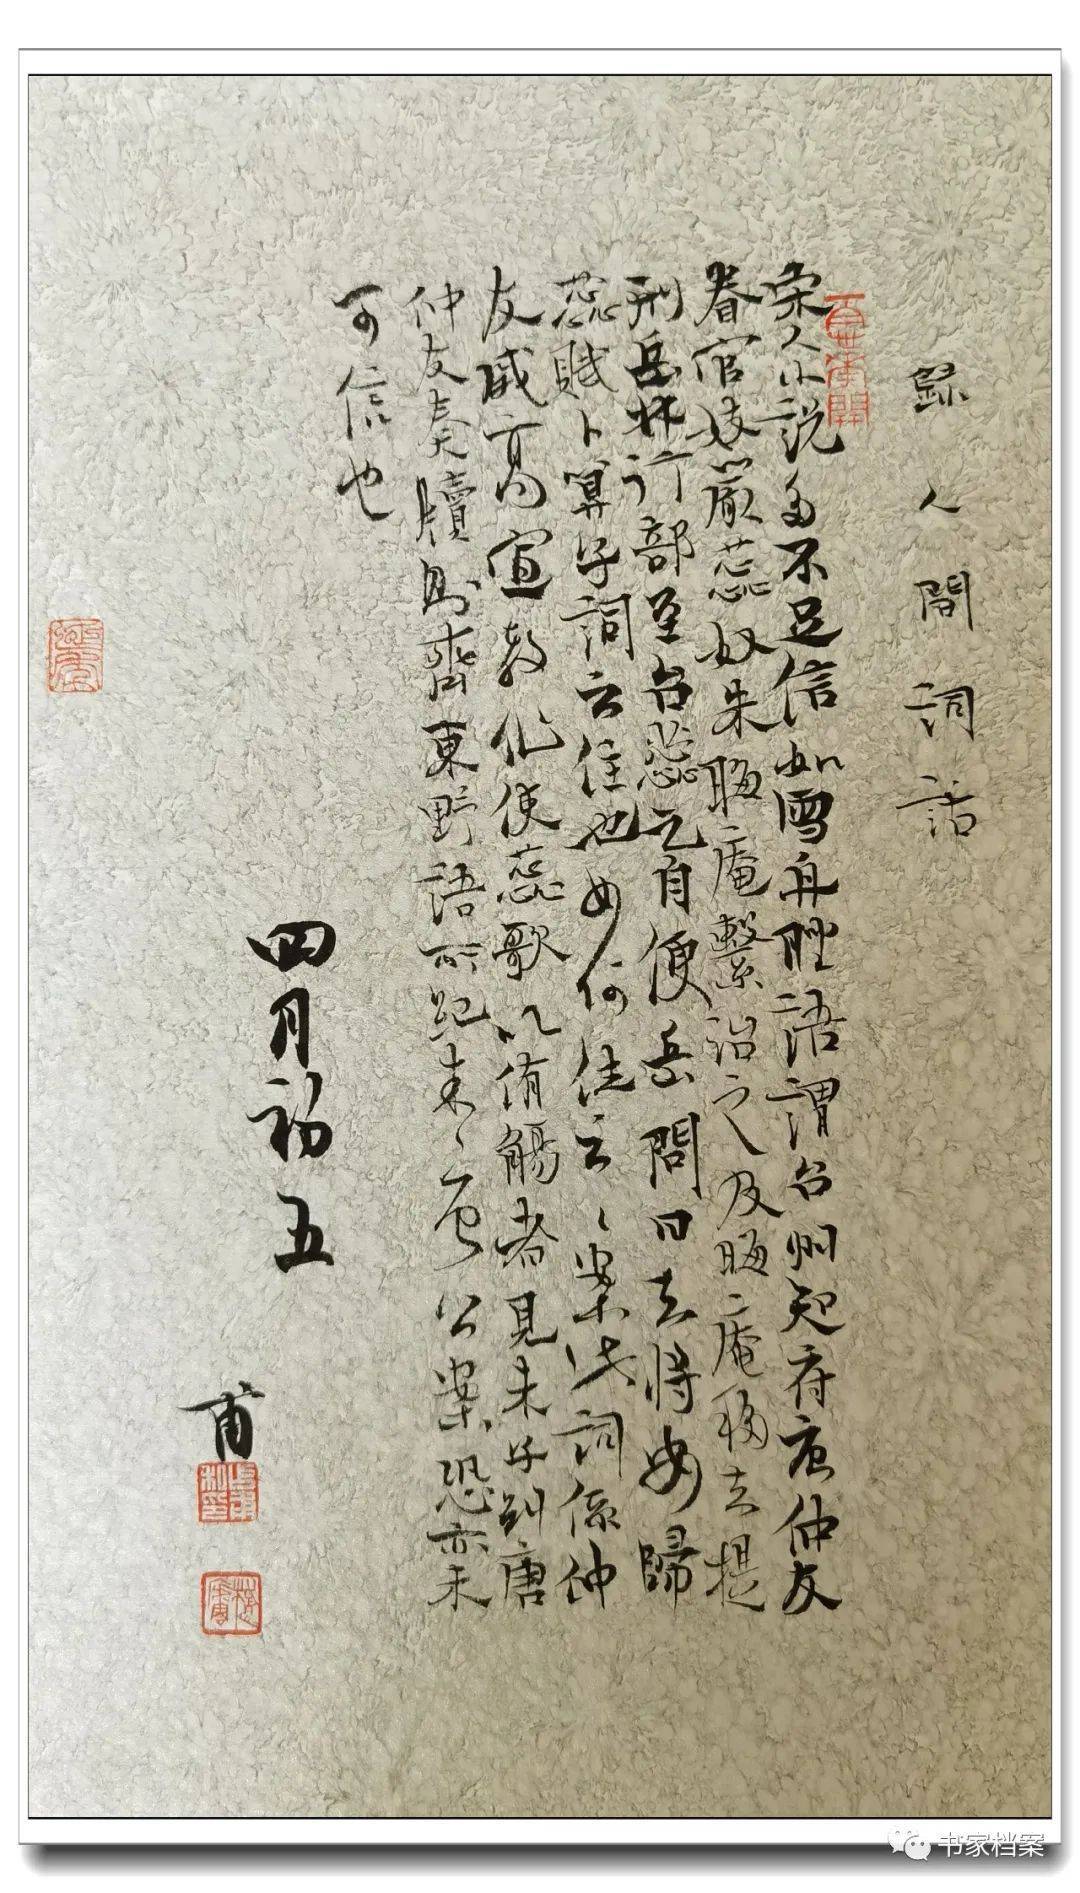 錄人間詞話
宋人小說多不足信如雪舟脞語謂台州知府唐仲友
眷官妓嚴蕊奴朱晦庵繫治之及晦庵移去提
刑岳林行部至台蕊乞自便岳問曰去將安歸
蕊賦卜算子詞云住也如何住云云案此詞係仲
友戚高宣教作使蕊歌以侑觴者見朱子糾唐
仲友奏牘則齊東野語所紀朱唐公案恐亦未
可信也
四月初五
甫
书家档案